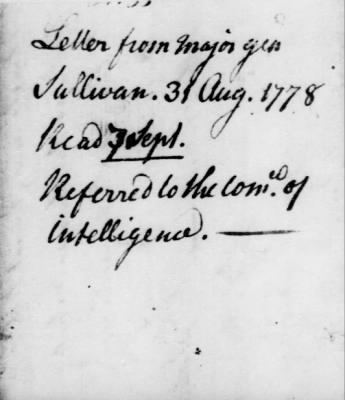 Letter from major gen
Sullivan. 31 Aug. 1778
Read 7 Sept.
Referred to the com.ee of
intelligence.